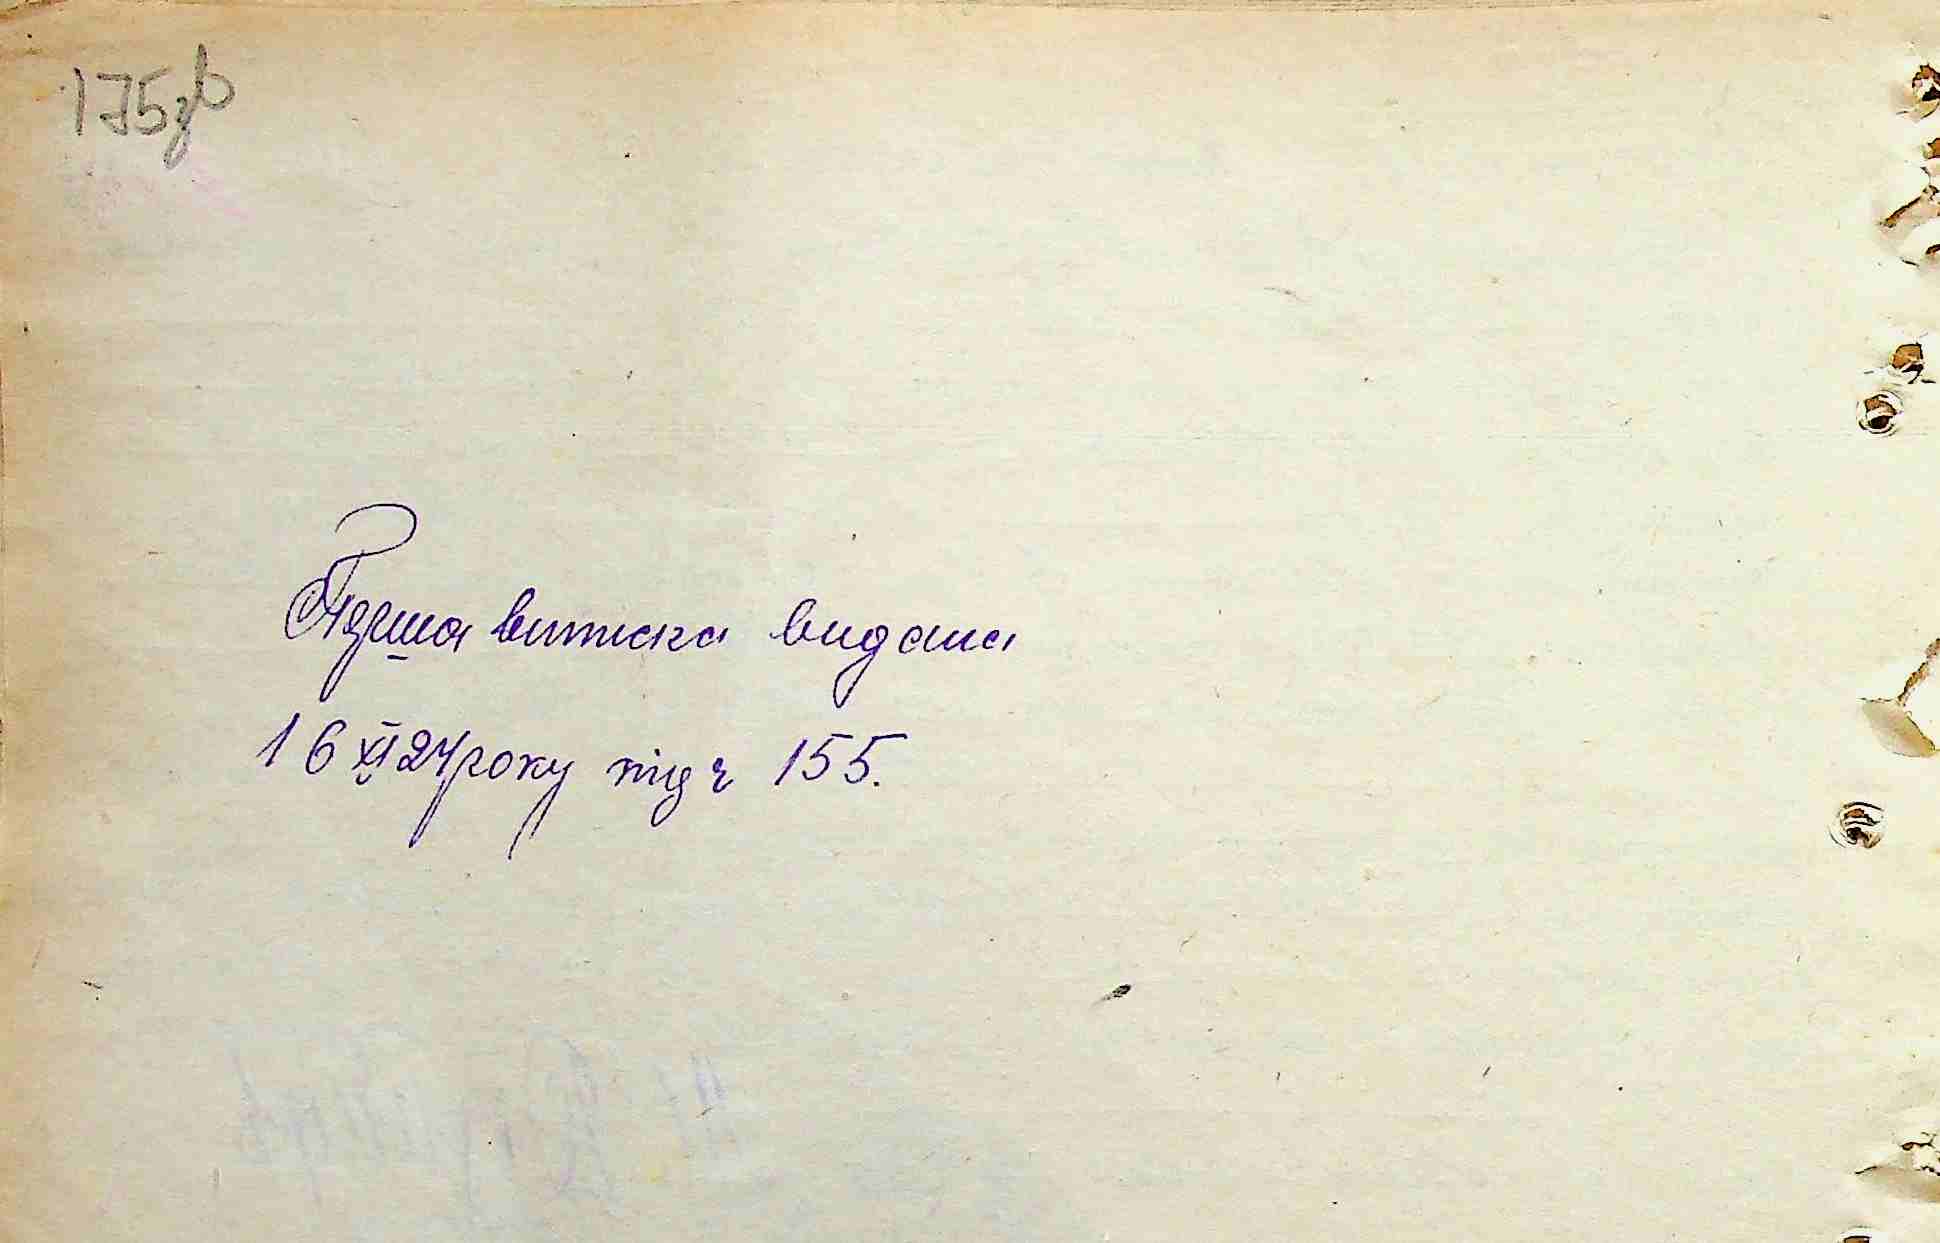 175зв
Перша виписка видана
16 XI 24 року під ч 155.